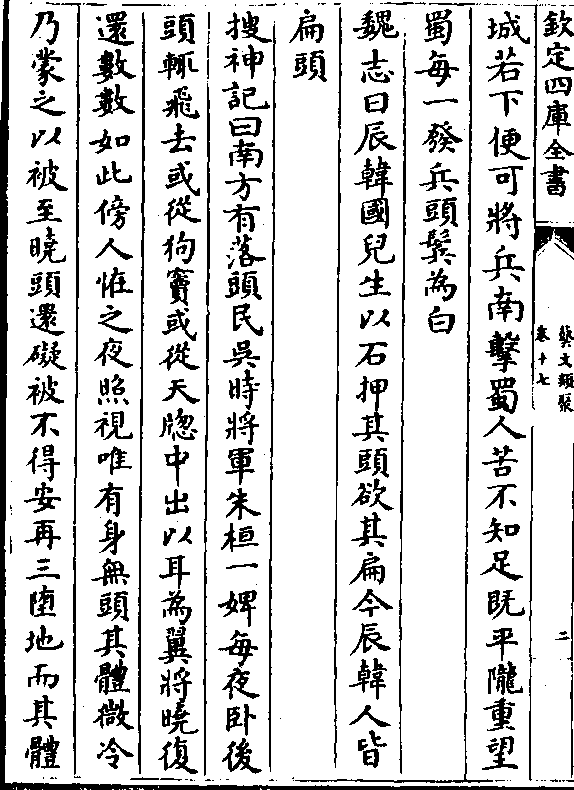 欽定四庫全書
藝文類聚
卷十七
二
城若下便可將兵南擊蜀人苦不知足既平隴重望
蜀每一發兵頭鬢為白
魏志曰辰韓國兒生以石押其頭欲其扁今辰韓人皆
扁頭
搜神記曰南方有落頭民吳時將軍朱桓一婢每夜卧後
頭輒飛去或從狗竇或從天牕中出以耳為翼將曉復
還數數如此傍人恠之夜照視唯有身無頭其體㣲冷
乃蒙之以被至曉頭還礙被不得安再三墮地而其體